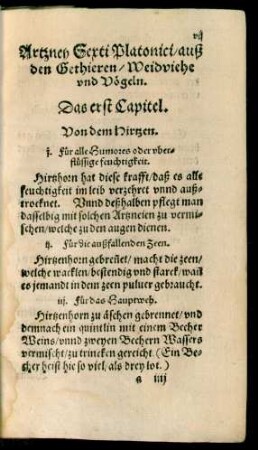 vij
Artzney Sexti Platonici/auß
den Gethieren/Weidviehe
vnd Vögeln.
Das erst Capitel.
Von dem Hirtzen.
j. Für alle Humores oder vber-
flüssige feuchtigkeit.
Hirtzhorn hat diese krafft/daß es alle
feuchtigkeit im leib verzehret vnnd auß-
trocknet. Vnnd deßhalben pflegt man
dasselbig mit solchen Artzneien zu vermi-
schen/welche zu den augen dienen.
ij. Für die außfallenden Zeen.
Hirtzenhorn gebreñet/macht die zeen/
welche wacklen/bestendig vnd starck/wañ
es jemandt in dem zeen puluer gebraucht.
iij. Für das Hauptweh.
Hirtzenhorn zu äschen gebrennet/vnd
demnach ein quintlin mit einem Becher
Weins/vnnd zweyen Bechern Wassers
vermischt/zu trincken gereicht (Ein Be-
cher heist hie so viel/als drey lot.)
a iiij